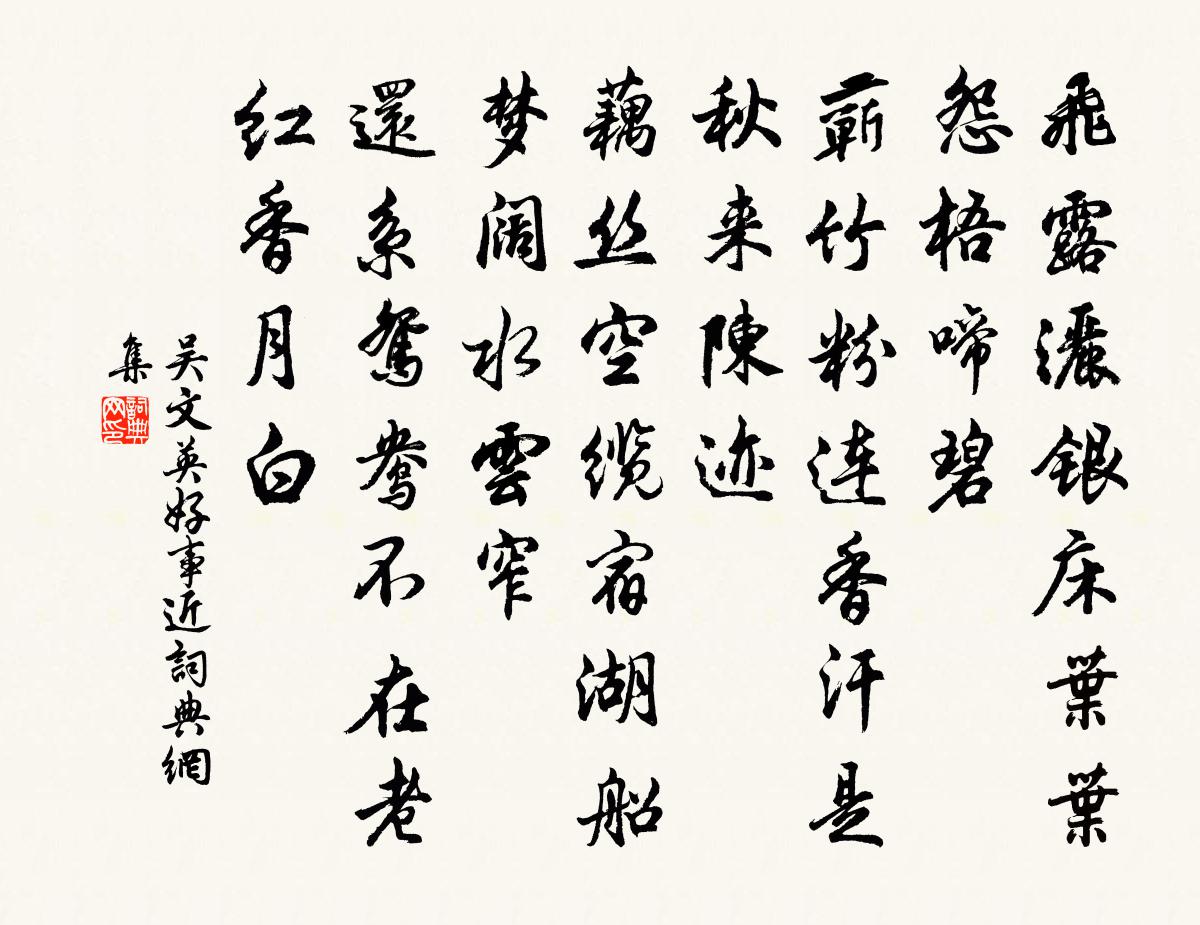 飛露灑銀床葉葉
怨梧啼碧
蘄竹粉连香汗是
秋来陳迹
藕丝空缆宿湖船
梦阔水雲窄
還系鸳鸯不在老
红香月白
吴文英好事近詞典網
集
詞典
网印